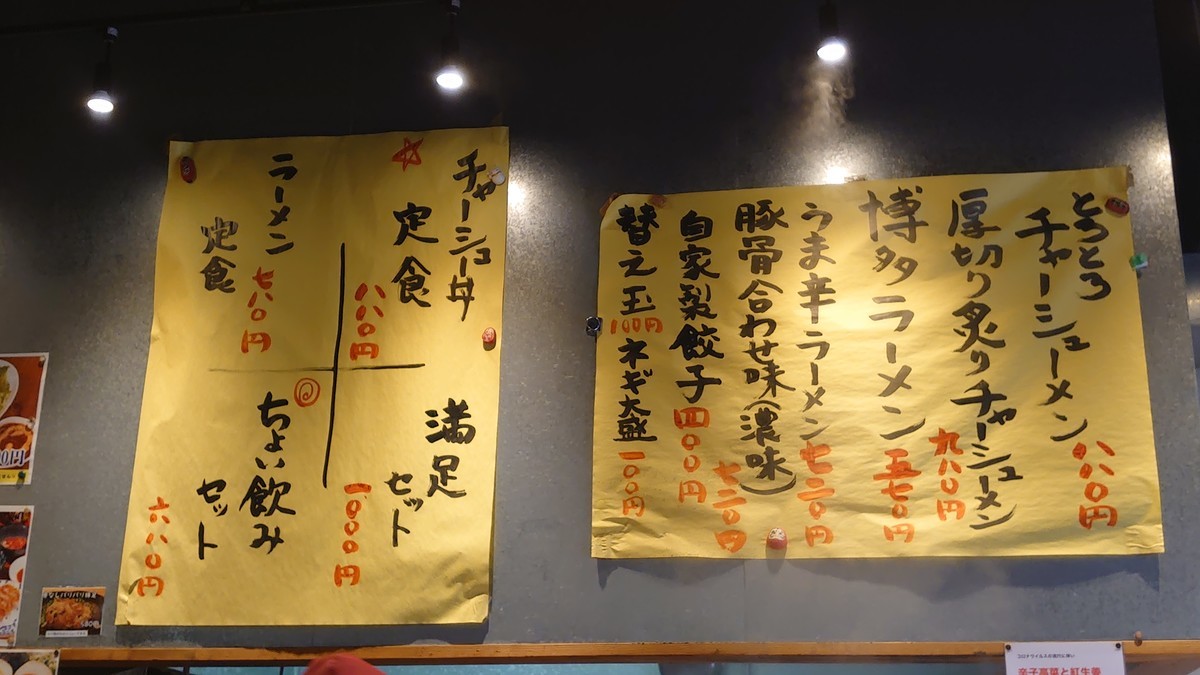 チャーシュー丼
定食
八八〇円
ラーメン
定食
七八〇円
満足
セット
一〇〇〇円
ちょい飲み
セット
六八〇円
とろとろ
チャーシューメン
八八〇円
厚切り炙りチャーシューメン
九八〇円
博多ラーメン
五七〇円
うま辛ラーメン
七二〇円
豚骨合わせ味(濃味)
七二〇円
自家製餃子
四〇〇円
替え玉100円 ネギ大盛一〇〇円
辛子高菜と紅生姜